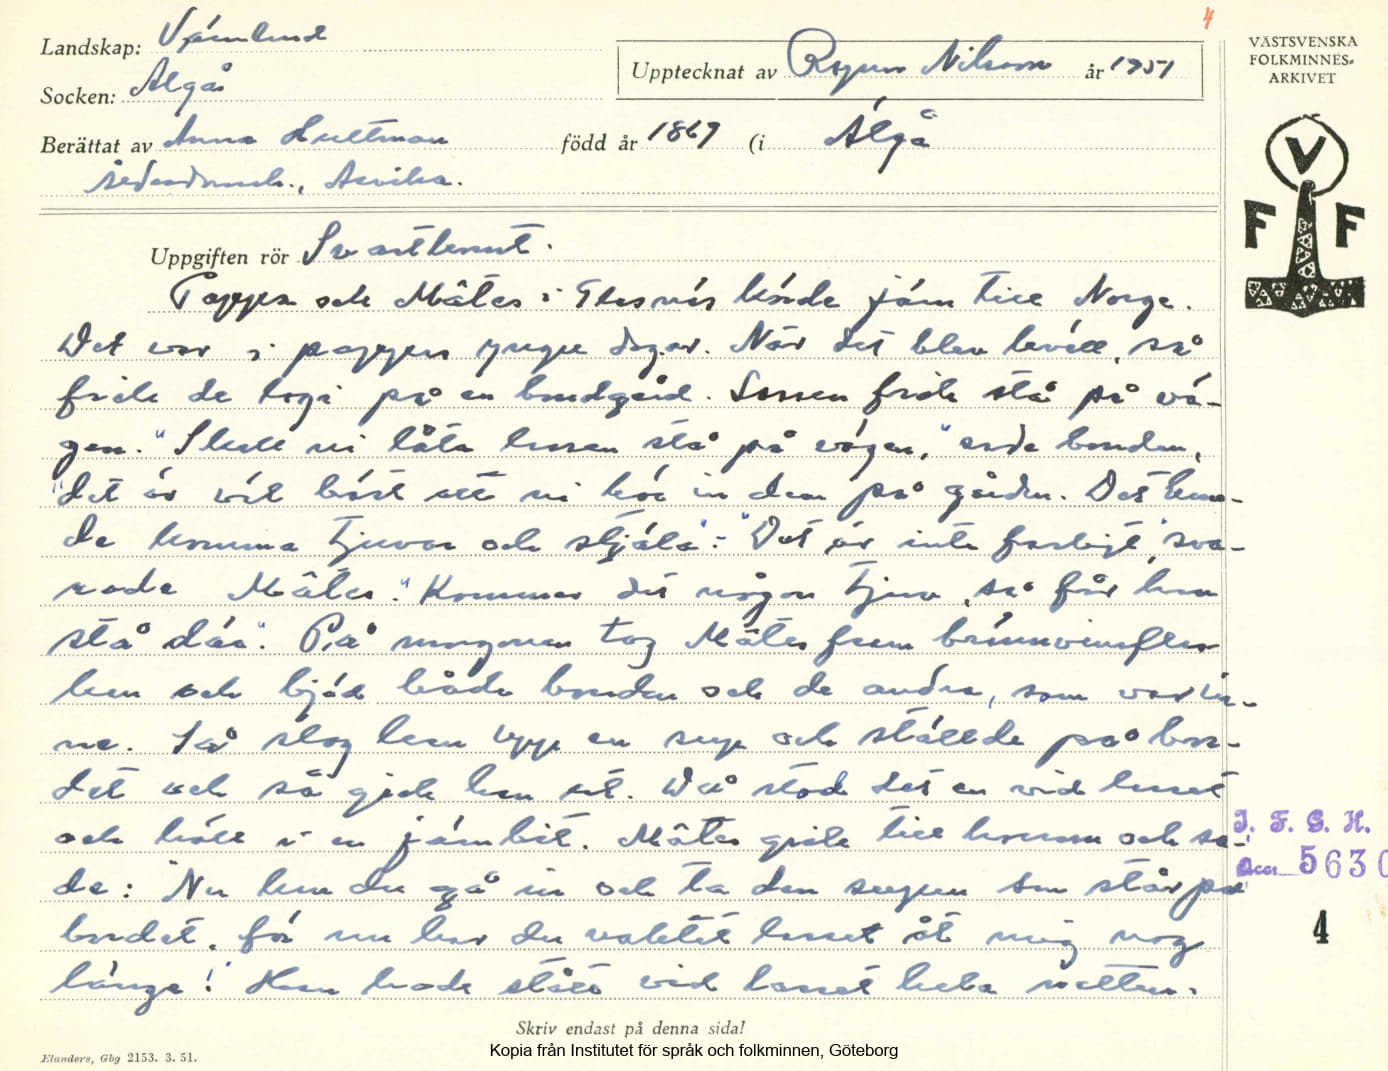 4
Landskap: Värmland
Socken: Älgå
Upptecknat av Ragnar Nilsson år 1951
Berättat av Anna Hultman född år 1869 (i Älgå
Arvika.
VÄSTSVENSKA
FOLKMINNES-
ARKIVET
V
F F
Uppgiften rör Svartkonst.
Pappa och Mätes i körde järn till Norge.
Det var i pappas yngre dagar. När det blev kväll, så
fick de logi på en bondgård. Lassen fick stå på vä-
gen. "Skall vi låta lassen stå på vägen," sade bonden,
"det är väl bäst att vi kör in dem på gården. Det kun-
de komma tjuvar och stjäla". - "Det är inte farligt" sva-
rade Mätes. "Kommer det någon tjuv, så får han
stå där". På morgonen tog Mätes fram brännvinsflas
kan och bjöd både bonden och de andra, som var in-
ne. Så slog han upp en sup och ställde på bor-
det och så gick han ut. Då stod det en vid lasset
och höll i en järnbit. Mätes gick till honom och sa-
de: "Nu kan du gå in och ta den supen som står på
bordet, för nu har du vaktat lasset åt mig nog
länge!" Han hade stått vid lasset hela natten.
I. F. G. H.
Acc. 5630
4
Skriv endast på denna sida!
Elanders, Gbg 2153. 3. 51.
Kopia från Institutet för språk och folkminnen, Göteborg